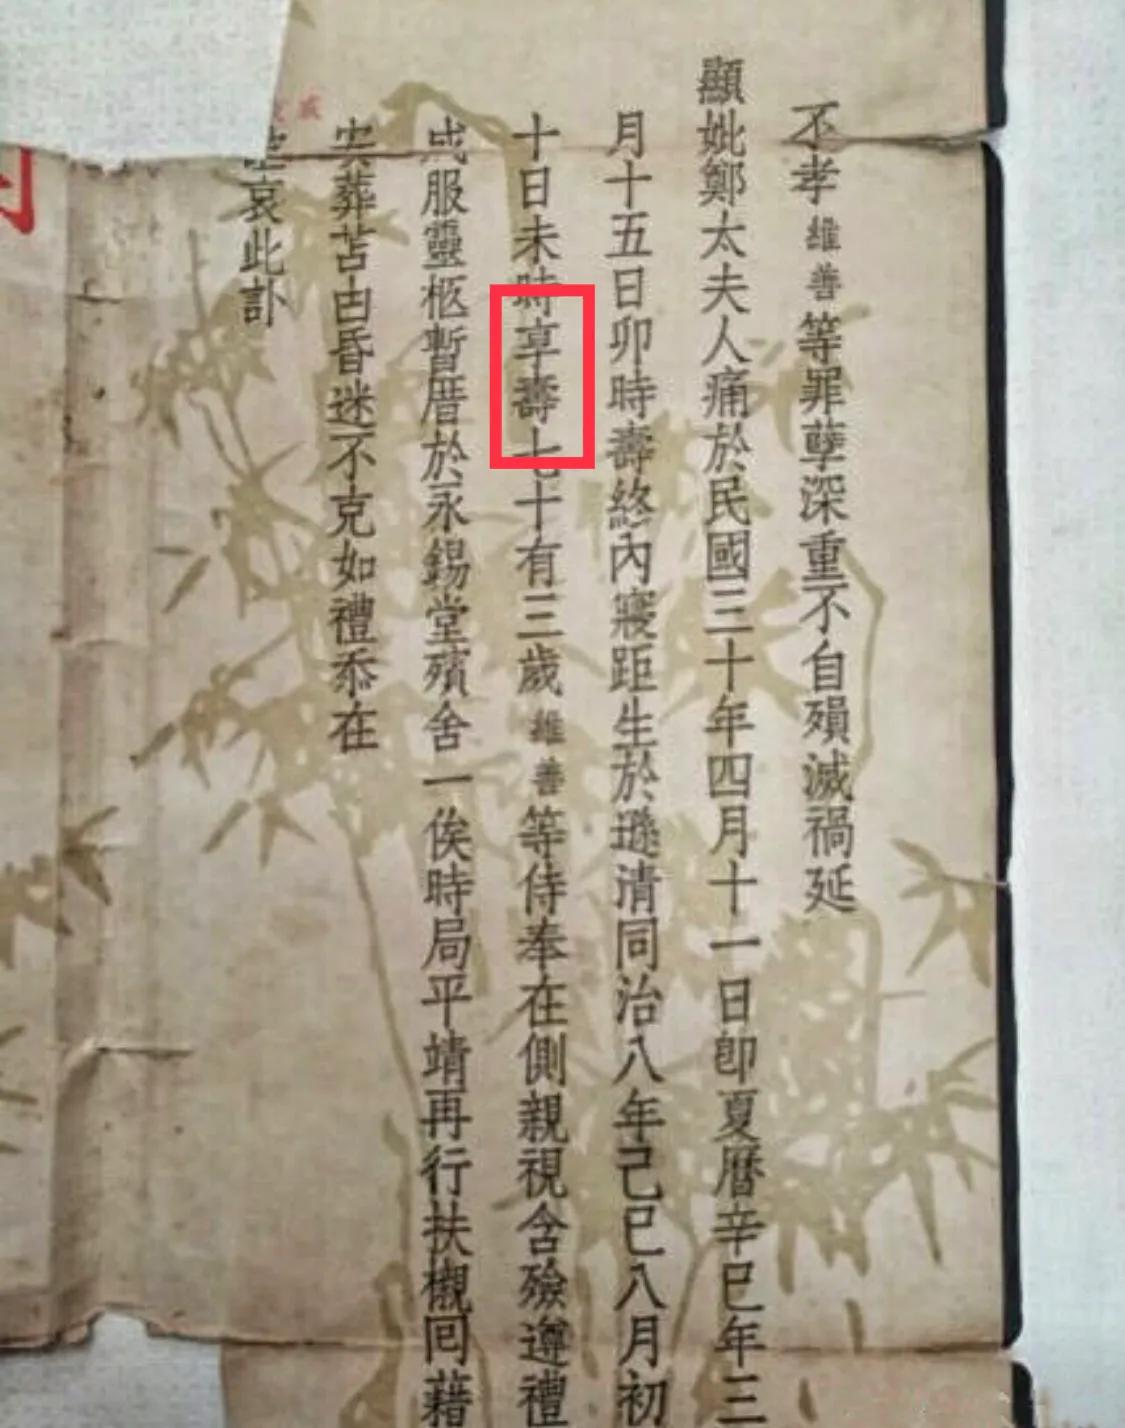 不孝維善等罪孽深重不自殞滅禍延
顯妣鄭太夫人痛於民國三十年四月十一日卽夏曆辛巳年三
月十五日卯時壽終內寢距生於遜清同治八年己巳八月初
十日未時享壽七十有三歲維善等侍奉在側親視含殮遵禮
成服靈柩暫厝於永錫堂殯舍一俟時局平靖再行扶櫬囘藉
安葬苫甴昏迷不克如禮忝在
哀此訃